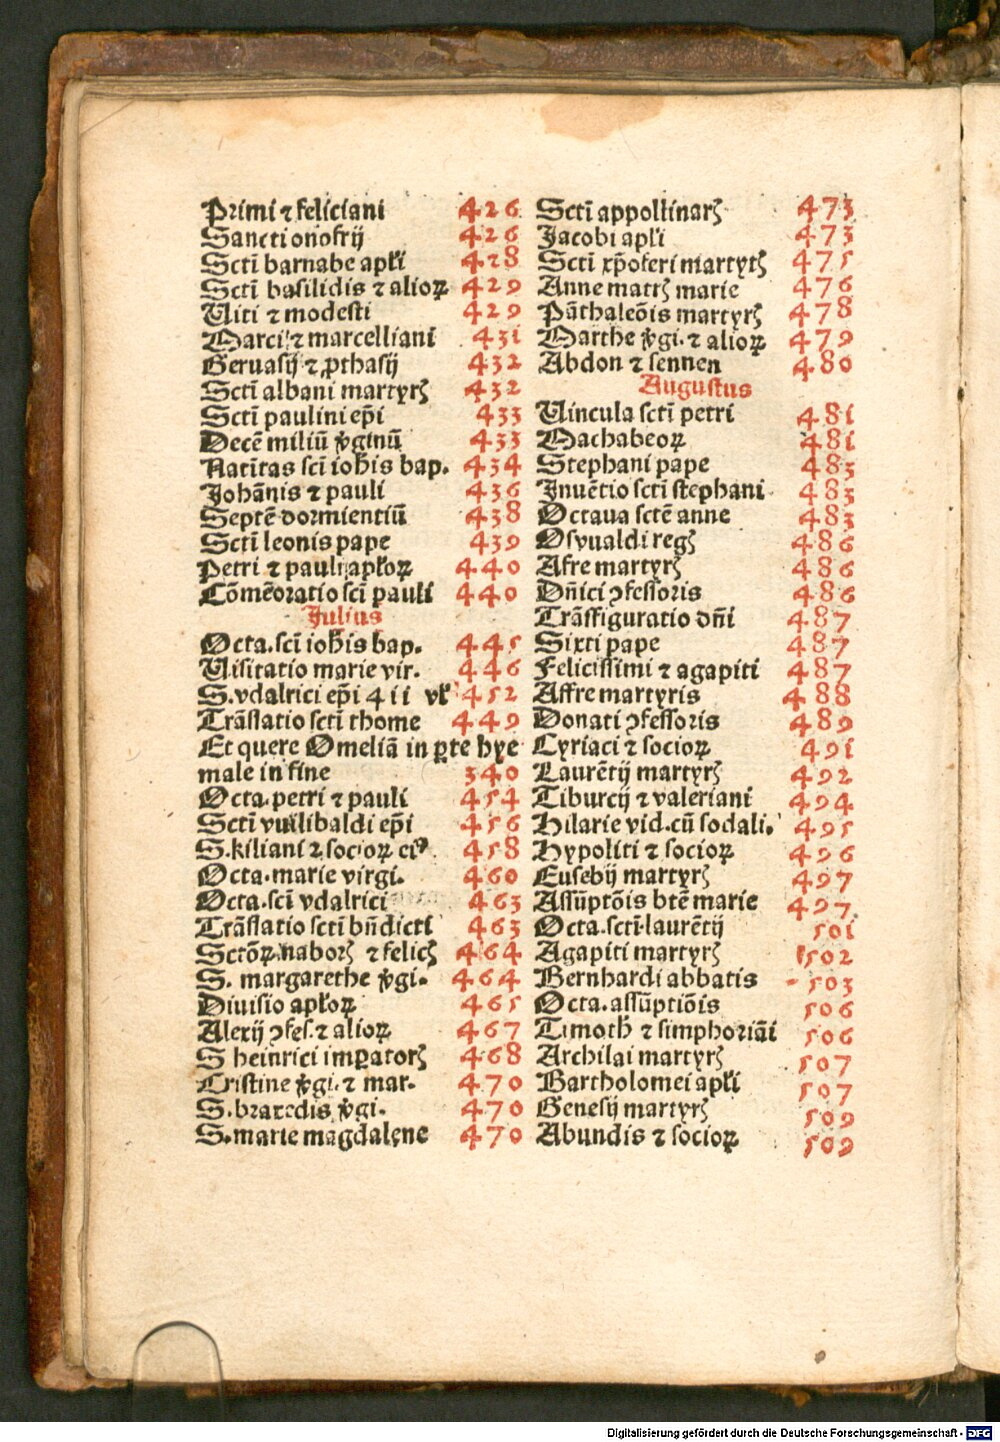 Primi ⁊ feliciani 426
Sancti onofrij 426
Scti᷑ barnabe apƚi 428
Sctī basilidis ⁊ alioꝝ 429
Uiti ⁊ modesti 429
Marci ⁊ marcelliani 431
Geruasij ⁊ ꝓthasij 432
Sctī albani martyrꝭ 432
Sctī paulini ep̄i 433
Decē miliū v̓ginū 433
Natīitas scī ioħis bap. 434
Johānis ⁊ pauli 436
Septē dormientiū 438
Sctī leonis pape 439
Petri ⁊ pauli apƚoꝝ 440
Cōmēoratio scī pauli 440
Julius
Octa.scī ioħis bap. 445
Uisitatio marie vir. 446
S.vdalrici ep̄i 4 ii vƚ 452
Trāslatio sctī thome 449
Et quere Omeliā in ꝑte hye
male in fine 340
Octa.petri ⁊ pauli 454
Sctī vuilibaldi ep̄i 456
S.kiliani ⁊ socioꝝ eiꝰ 458
Octa.marie virgi. 460
Octa.scī vdalrici 463
Trāslatio sctī bn̄dicti 463
Sctōꝝ naborꝭ ⁊ felicꝭ 464
S. margarethe v̓gi. 464
Diuisio apƚoꝝ 465
Alexij ꝯfes.⁊ alioꝝ 467
S heinrici imꝑatorꝭ 468
Cristine v̓gi.⁊ mar. 470
S.braxedis v̓gi. 470
S.marie magdalene 470
Sctī appollinarꝭ 473
Jacobi apƚi 473
Sctī xp̄oferi martyrꝭ 475
Anne matrꝭ marie 476
Pāthaleōis martyrꝭ 478
Marthe v̓gi.⁊ alioꝝ 479
Abdon ⁊ sennen 480
Augustus
Uincula sctī petri 481
Machabeoꝝ 481
Stephani pape 483
Inuētio sctī stephani 483
Octaua sctē anne 483
Osvualdi regꝭ 486
Afre martyrꝭ 486
Dn̄ici ꝯfessoris 486
Trāsfiguratio dn̄i 487
Sixti pape 487
Felicissimi ⁊ agapiti 487
Affre martyris 488
Donati ꝯfessoris 489
Cyriaci ⁊ socioꝝ 491
Laurētij martyrꝭ 492
Tiburcij ⁊ valeriani 494
Hilarie vid.cū sodali. 495
Hypoliti ⁊ socioꝝ 496
Eusebij martyrꝭ 497
Assūptōis btē marie 497
Octa.sctī.laurētij 501
Agapiti martyrꝭ 502
Bernhardi abbatis 503
Octa.assūptiōis 506
Timoth̄ ⁊ simphoriāi 506
Archilai martyrꝭ 507
Bartholomei apƚi 507
Genesij martyrꝭ 509
Abundis ⁊ socioꝝ 509
Digitalisierung gefördert durch die Deutsche Forschungsgemeinschaft - DFG